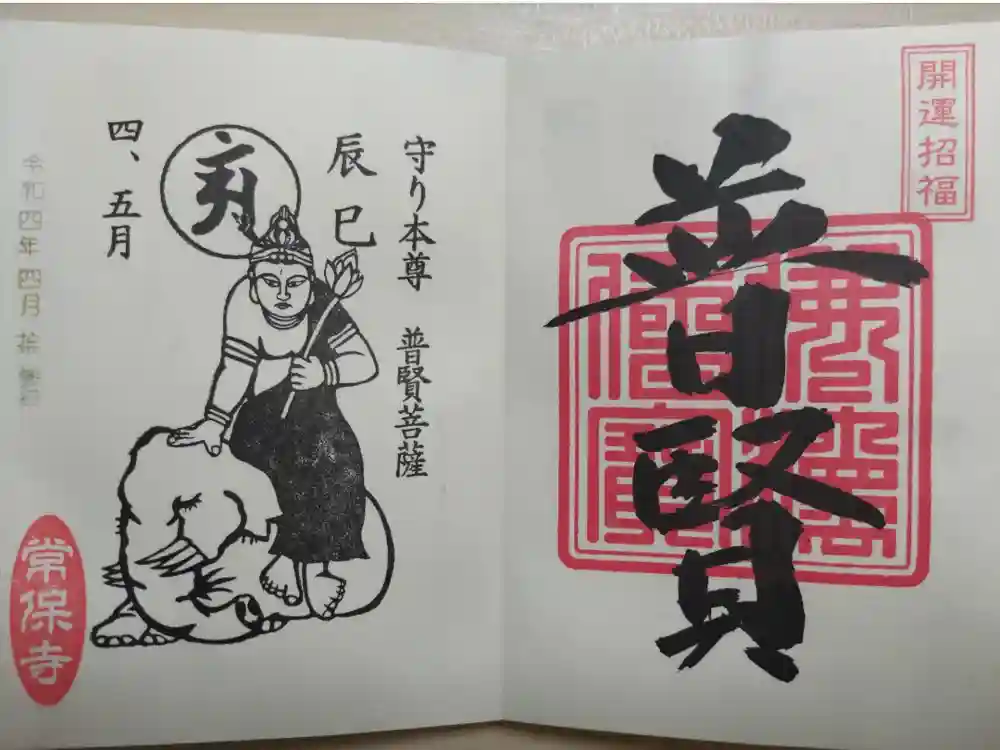 開運招福
普賢
佛法僧寶
守り本尊 普賢菩薩
辰巳
四、五月
令和四年四月拾
常保寺